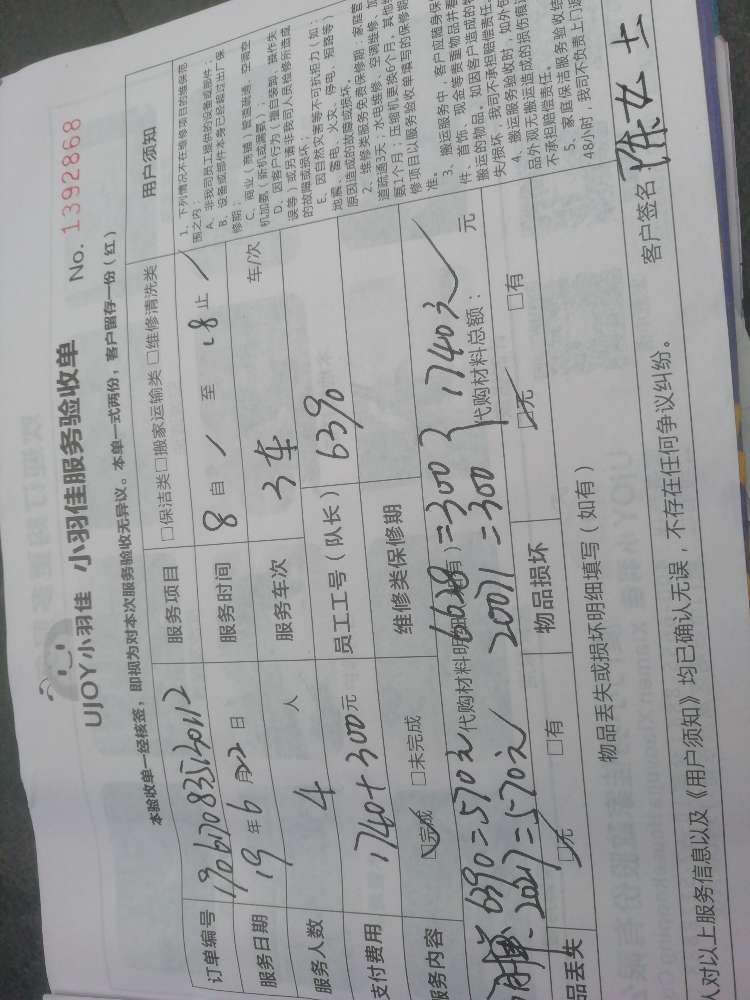 UJOY小羽佳 小羽佳服务验收单 No. 1392868
本验收单一经核签，即视为对本次服务验收无异议。本单一式两份，客户留存一份（红）
订单编号
服务项目 □保洁类□搬家运输类 □维修清洗类
服务日期 19 年 6 月 22 日
服务时间 8 自 / 至 18 止 /
服务人数 4 人
服务车次 3车 车/次
支付费用 1740+300元
员工工号（队长） 6390
服务内容 ☑完成 □未完成
维修类保修期
6390=570元
2027=570元
6628=300
20071=300
1740元
代购材料总额： 元
品丢失 ☑无 □有
物品损坏 ☑无 □有
物品丢失或损坏明细填写（如有）
人对以上服务信息以及《用户须知》均已确认无误，不存在任何争议纠纷。
客户签名：陈女士
用户须知
1、下列情况不在维修项目的维保范
围之内：
A、非我司员工提供的设备或部件；
B、设备或部件本身已经超过出厂保
修期；
C、商业（燕遁）管道疏通、空调空
机加氨（新机或漏氨）；
D、因客户行为（擅自装卸、操作失
误等）或另请非我司人员检修所造成
的故障或损坏；
E、因自然灾害等不可抗拒力（如：
地震、雷电、火灾、停电、短路等）
原因造成的故障或损坏。
2、维修类服务免费保修期：家庭管
道疏通3天；水电维修、空调维修、加
氨1个月；压缩机更换6个月，其他维
修项目以服务验收单填写的保修期
准。
3、搬运服务中，客户应随身保
件、首饰、现金等贵重物品并看
搬运的物品。如因客户造成的物
失损坏，我司不承担赔偿责任。
4、搬运服务验收时，如外包
品外观无搬运造成的损伤痕迹
不承担赔偿责任。
5、家庭保洁服务验收结
48小时，我司不负责上门返